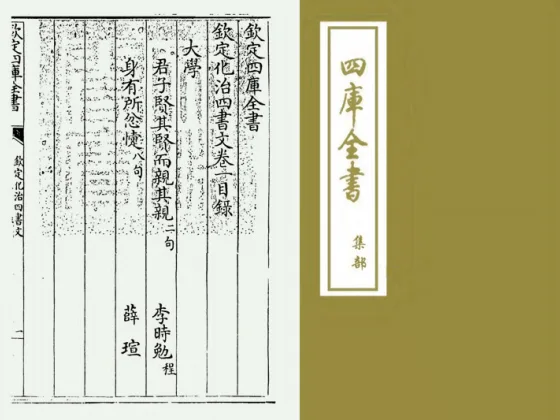 欽定四庫全書
欽定化治四書文卷一目録
大學
君子賢其賢而親其親二句 李時勉 程
身有所忿懥八句 薛瑄
欽定四庫全書
欽定化治四書文
一
四庫全書
集部